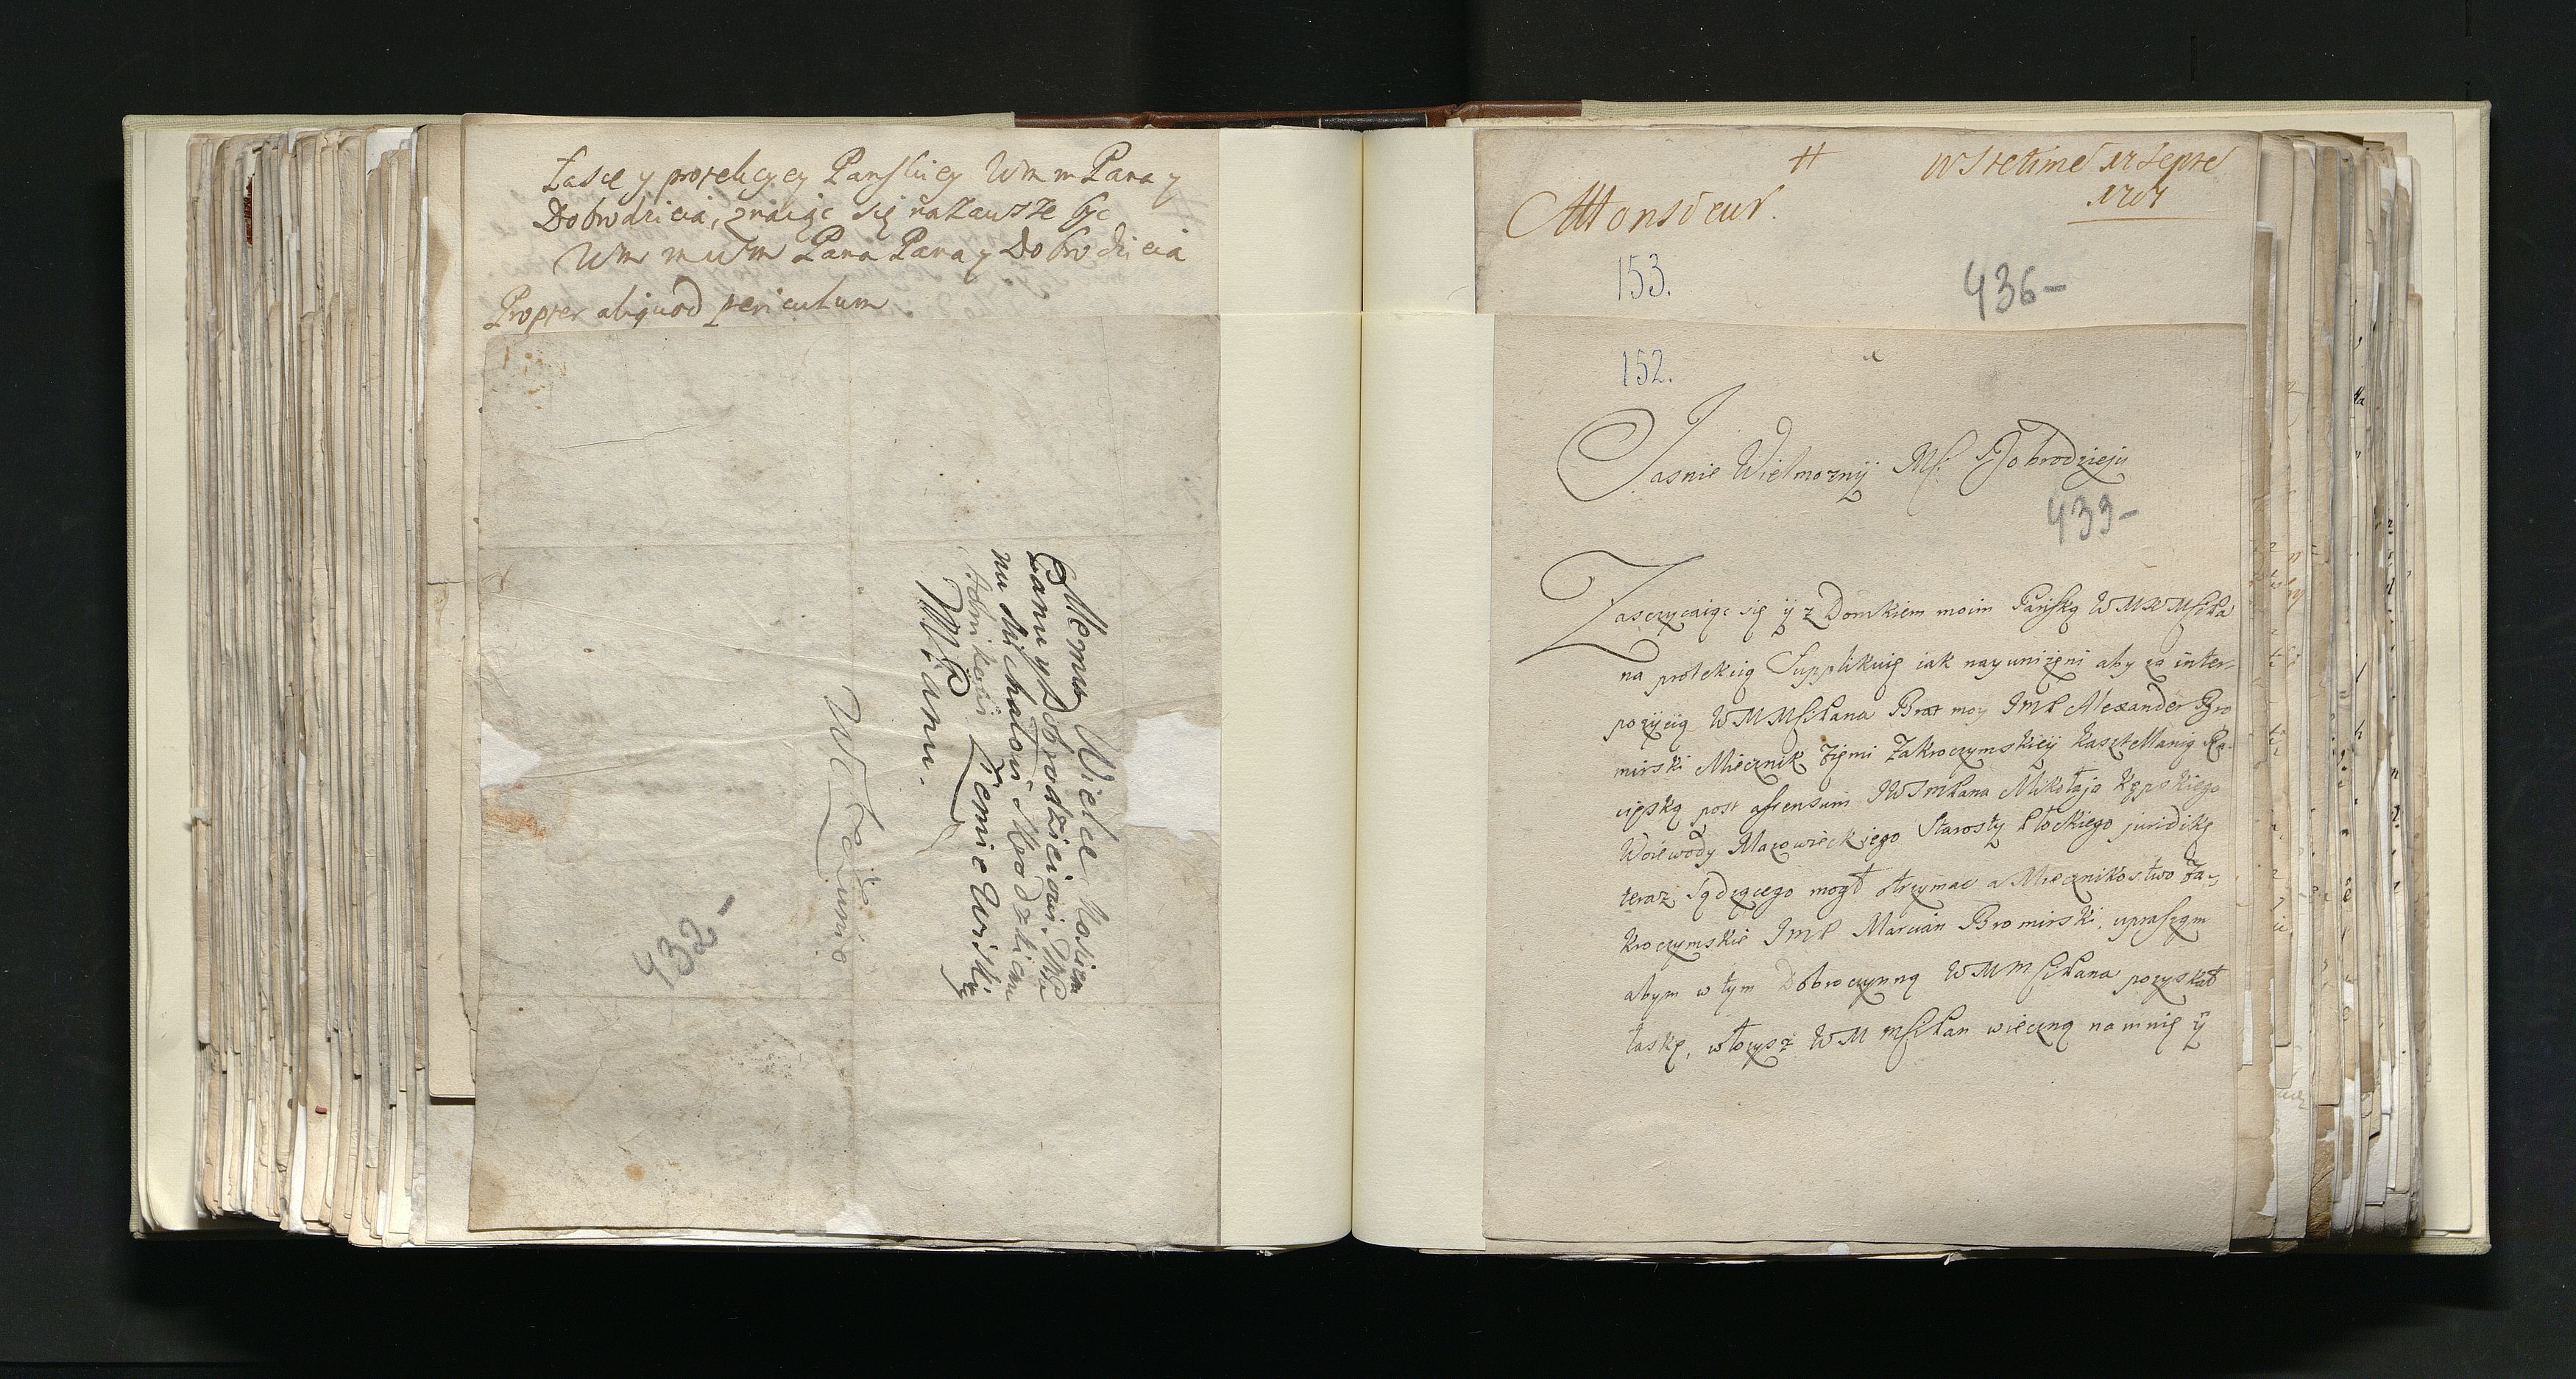 Łasce y protekcyey Panskiey Wm m Pana y
Dobrodzieia, znaiąc się nazawsze być
Wm m Wm Pana Pana y Dobrodzieia
Propter aliquod periculum
Memu Wielce Mosciem
Panu y Dobrodzieiowi
nu Michałowi
Ziemie
MPanu.
432-
#
Monsieur.
153.
436-
152.
Jasnie Wielmoznÿ MS. Dobrodzieju
433-
Zasczycaiąc się ÿ z Domkiem moim Pańską WMWMSPana
na protekcią Supplikuię iak nayuniżeni aby za inter-
pozÿcią WMMSCPana Brat moy JmP Alexander Bro
mirski Miecznik Ziemi Zakroczymskieÿ Kasztellanią Ra-
ciąską post assensum JWJmPana Mikołaja Kępskiego
Woiewody Mazowieckiego Starosty Płockiego juridikę
teraz Sądzącego mogł otrzymac a Miecznikostwo Za-
kroczymskie JmP Marcian Bromirski, upraszam
abym w tym Dobroczynną WMMSCPana pozyskał
łaskę, włozysz WM MSCPan wieczną na mnię ÿ